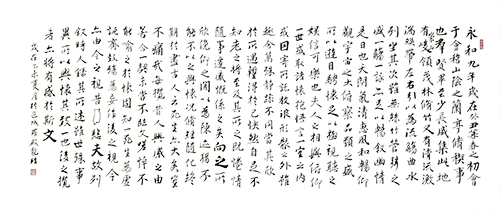 永和九年歲在癸丑暮春之初會
于會稽山陰之蘭亭脩稧事
也羣賢畢至少長咸集此地
有峻領茂林脩竹又有清流激
湍暎帶左右引以為流觴曲水
列坐其次雖無絲竹管弦之
盛一觴一詠亦足以暢敘幽情
是日也天朗氣清惠風和暢仰
觀宇宙之大俯察品類之盛
所以遊目騁懷足以極視聽之
娛信可樂也夫人之相與俯仰
一世或取諸懷抱悟言一室之內
或因寄所託放浪形骸之外雖
趣舍萬殊靜躁不同當其欣
於所遇暫得於己快然自足不
知老之將至及其所之既惓情
隨事遷感慨係之矣向之所
欣俛仰之閒以為陳迹猶不
能不以之興懷況脩短隨化終
期於盡古人云死生亦大矣豈
不痛哉每攬昔人興感之由
若合一契未嘗不臨文嗟悼不
能喻之於懷固知一死生為虛
誕齊彭殤為妄作後之視今
亦由今之視昔悲夫故列
敘時人錄其所述雖世殊事
異所以興懷其致一也後之攬
者亦將有感於斯文
歲在乙未夏月於